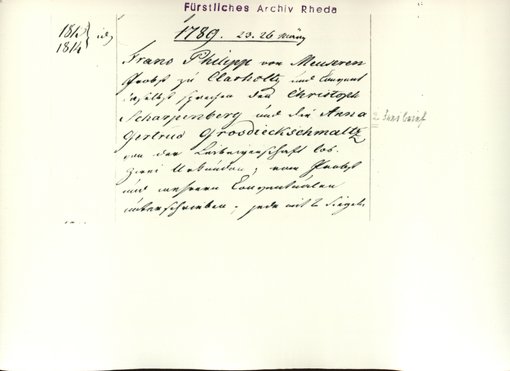 Fürstliches Archiv Rheda
1813
1814
1789. 23. 26 März
Franz Philipp von Meuseren
Probst zu Clarholtz und Convent
daselbst sprechen den Christoph
Scharpenberg und die Anna
Gertrud Grosdieckschmaltz
von der Leibeigenschaft los.
Zwei Urkunden, vom Probst
und mehrern Conventualen
unterschrieben, jede mit 2 Siegeln